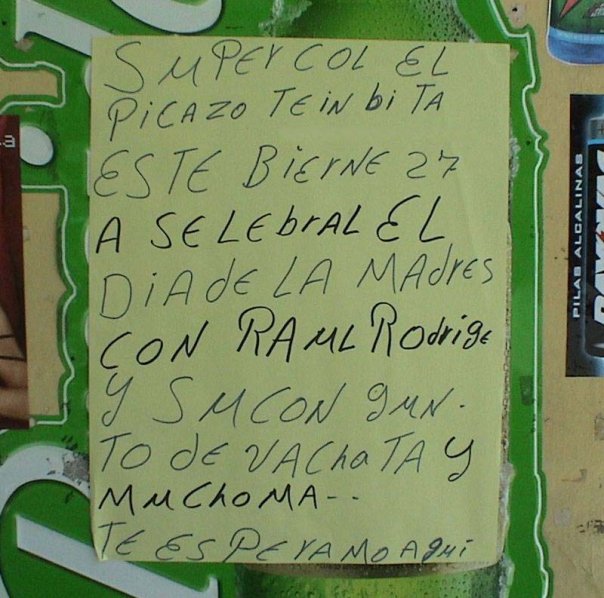 SuPERCOL EL
PICAZO TEINbiTA
ESTE BIERNE 27
A SELEbrAL EL
DIA dE LA MAdrES
CON RAuL Rodrige
Y SuCON gUN-
TO dE VAChATA Y
MuChoMA--
TE ESPERAMO Agui
PILAS ALCALINAS
RAYOVAC